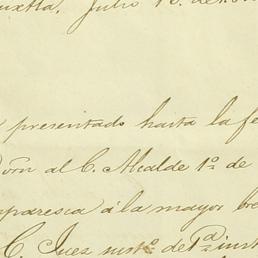 uxtla. Julio 1
presentado hasta la fe
orn al C. Alcalde 1º de
mparesca á la mayor bre
C. Juez inst.º de 1ª inst